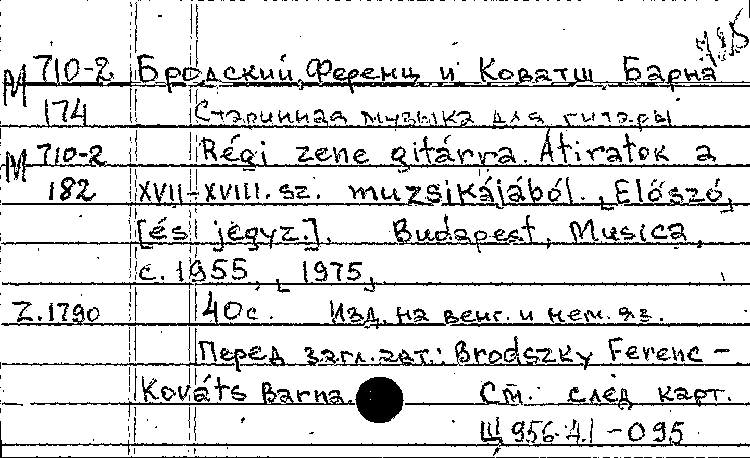 М 710-2 Бродский, Ференц и Коватш, Барна
174 Старинная музыка для гитары
М 710-2 Régi zene gitárra. Átiratok a
182 XVII-XVIII. sz. muzsikájából. ⌞Előszó⌟
[és jegyz.]. Budapest, Musica,
c. 1955, ⌞1975⌟
Z.1790 40c. Изд. на венг. и нем. яз.
Перед загл. авт.: Brodszky Ferenc -
Kováts Barna. См. след карт.
Щ 956.41-095